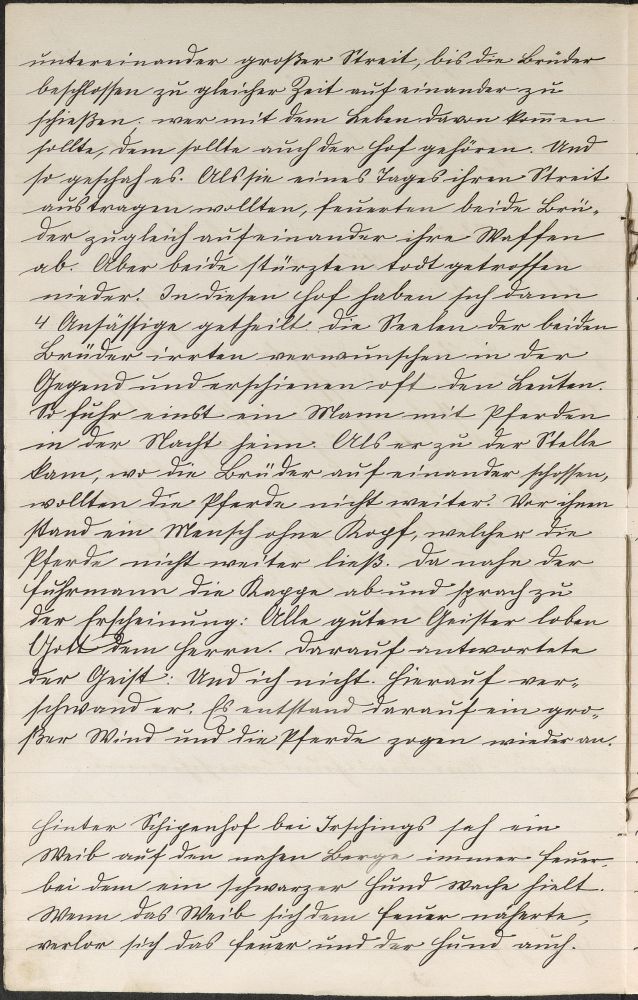 untereinander großer Streit, bis die Brüder
beschlossen zu gleicher Zeit auf einander zu
schießen. wer mit dem Leben davon kom̄en
sollte, dem sollte auch der Hof gehören. Und
so geschah es. Als sie eines Tages ihren Streit
austragen wollten, feuerten beide Brü-
der zugleich aufeinander ihre Waffen
ab. Aber beide stürzten todt getroffen
nieder. In diesen Hof haben sich dann
4 Ansässige getheilt. die Seelen der beiden
Brüder irrten verwunschen in der
Gegend und erschienen oft den Leuten.
So fuhr einst ein Mann mit Pferden
in der Nacht heim. Als er zu der Stelle
kam, wo die Brüder auf einander schossen,
wollten die Pferde nicht weiter. Vor ihnen
stand ein Mensch ohne Kopf, welcher die
Pferde nicht weiter ließ. Da nahm der
Fuhrmann die Kappe ab und sprach zu
der Erscheinung: Alle guten Geister loben
Gott dem Herrn. Darauf antwortete
der Geist: Und ich nicht. Hierauf ver-
schwand er. Es entstand darauf ein gro-
ßer Wind und die Pferde zogen wieder an.
Hinter Schipenhof bei Irschings sah ein
Weib auf den nahen Berge immer Feuer,
bei dem ein schwarzer Hund wache hielt.
Wenn das Weib sich dem Feuer näherte,
verlor sich das Feuer und der Hund auch.